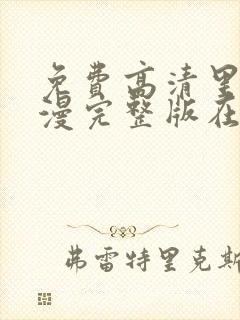 免费高清里
漫完整版在
弗雷特里克斯